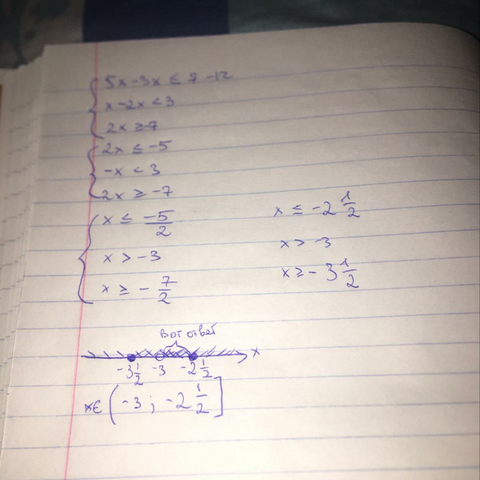 5x-3x ≤ 7-12
x-2x < 3
2x ≥ -7
2x ≤ -5
-x < 3
2x ≥ -7
x ≤ -5/2
x > -3
x ≥ -7/2
x ≤ -2 1/2
x > -3
x ≥ -3 1/2
Вот ответ
-3 1/2 -3 -2 1/2 x
x∈(-3; -2 1/2]